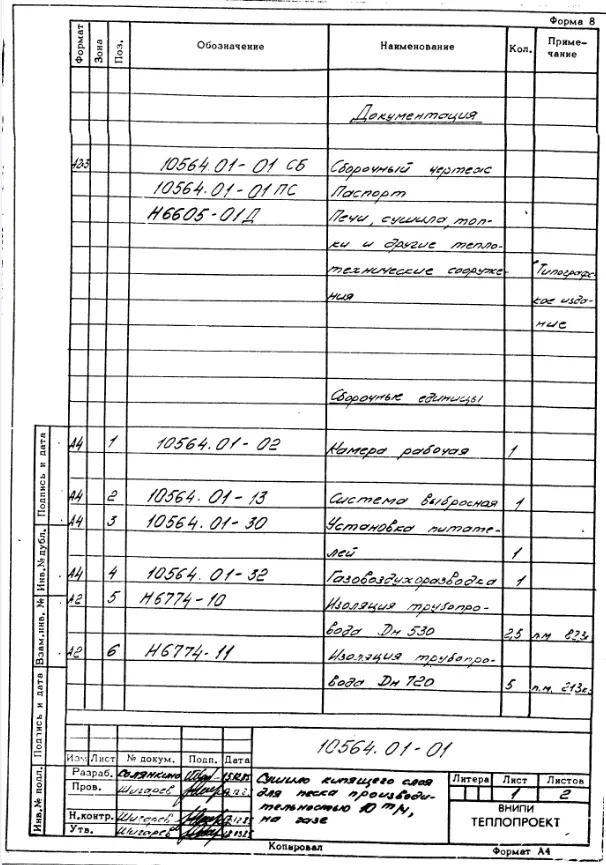 Форма 8
Формат Зона Поз. Обозначение Наименование Кол. Приме-
чание
Документация
10564.01-01 СБ Сборочный чертеж
10564.01-01 ПС Паспорт
Н6605-01Д Печи, сушила, топ-
ки и другие тепло-
технические сооруже- Типографс-
ния кое изда-
ние
Сборочные единицы
А4 1 10564.01-02 Камера рабочая 1
А4 2 10564.01-13 Система выбросная 1
А4 3 10564.01-30 Установка питате-
лей 1
А4 4 10564.01-32 Газовоздухоразводка 1
А2 5 Н6774-10 Изоляция трубопро-
вода Dн 530 2,5 п.м.
А2 6 Н6774-11 Изоляция трубопро-
вода Dн 720 5 п.м.
10564.01-01
Изм Лист № докум. Подп. Дата
Разраб.
Пров. Шигарев
Н.контр. Шигарев
Утв. Шигарев
Сушило кипящего слоя
для песка производи-
тельностью 10 т/ч,
на газе
Литера Лист Листов
1 2
ВНИПИ
ТЕПЛОПРОЕКТ
Копировал Формат А4
Инв.№ подл. Подпись и дата Взам.инв. № Инв.№ дубл. Подпись и дата